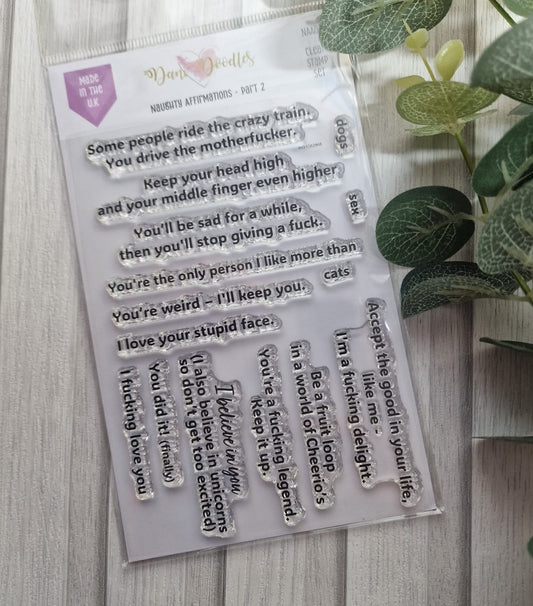 MADE
IN THE
U.K
Dani Doodles
Naughty Affirmations - Part 2
STAMP
SET
Some people ride the crazy train.
You drive the motherfucker.
dogs
Keep your head high
and your middle finger even higher
sex
You'll be sad for a while,
then you'll stop giving a fuck.
You're the only person I like more than
cats
You're weird – I'll keep you.
I love your stupid face.
Accept the good in your life,
like me -
I'm a fucking delight.
Be a fruit loop
in a world of Cheerio's
You're a fucking legend.
Keep it up.
I believe in you
(I also believe in unicorns
so don't get too excited)
You did it! (finally)
I fucking love you